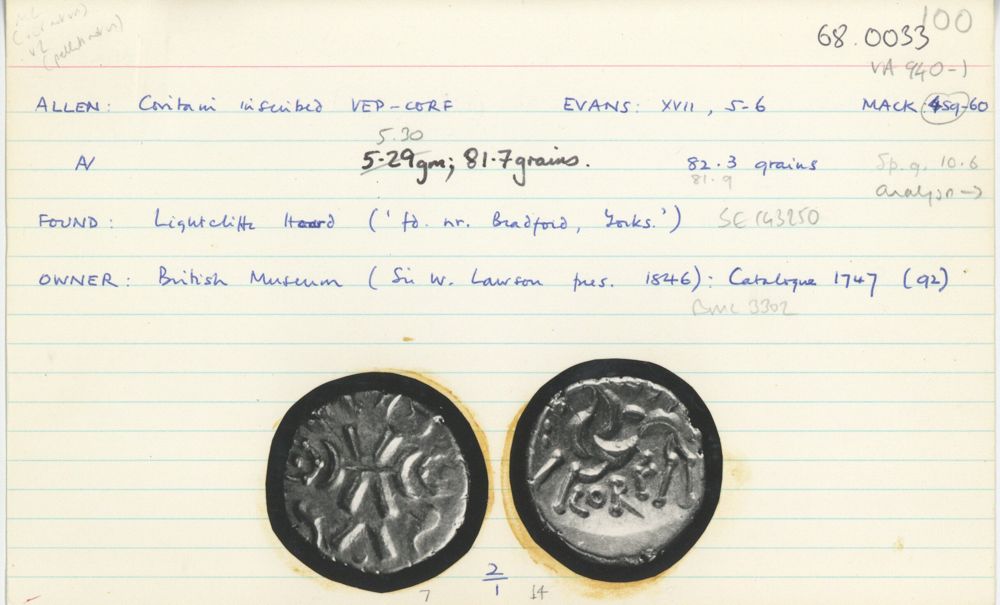 68.0033 100
VA 940-1
ALLEN: Coritani inscribed VEP-CORF EVANS: XVII, 5-6 MACK 459-60
5.30
A/ 5.29gm; 81.7grains. 82.3 grains Sp.g. 10.6
81.9 analysis →
FOUND: Lightcliffe Hoard ('fd. nr. Bradford, Yorks.') SE 143250
OWNER: British Museum (Sir W. Lawson pres. 1846): Catalogue 1747 (92)
BMC 3302
CORF
2
1
7 14